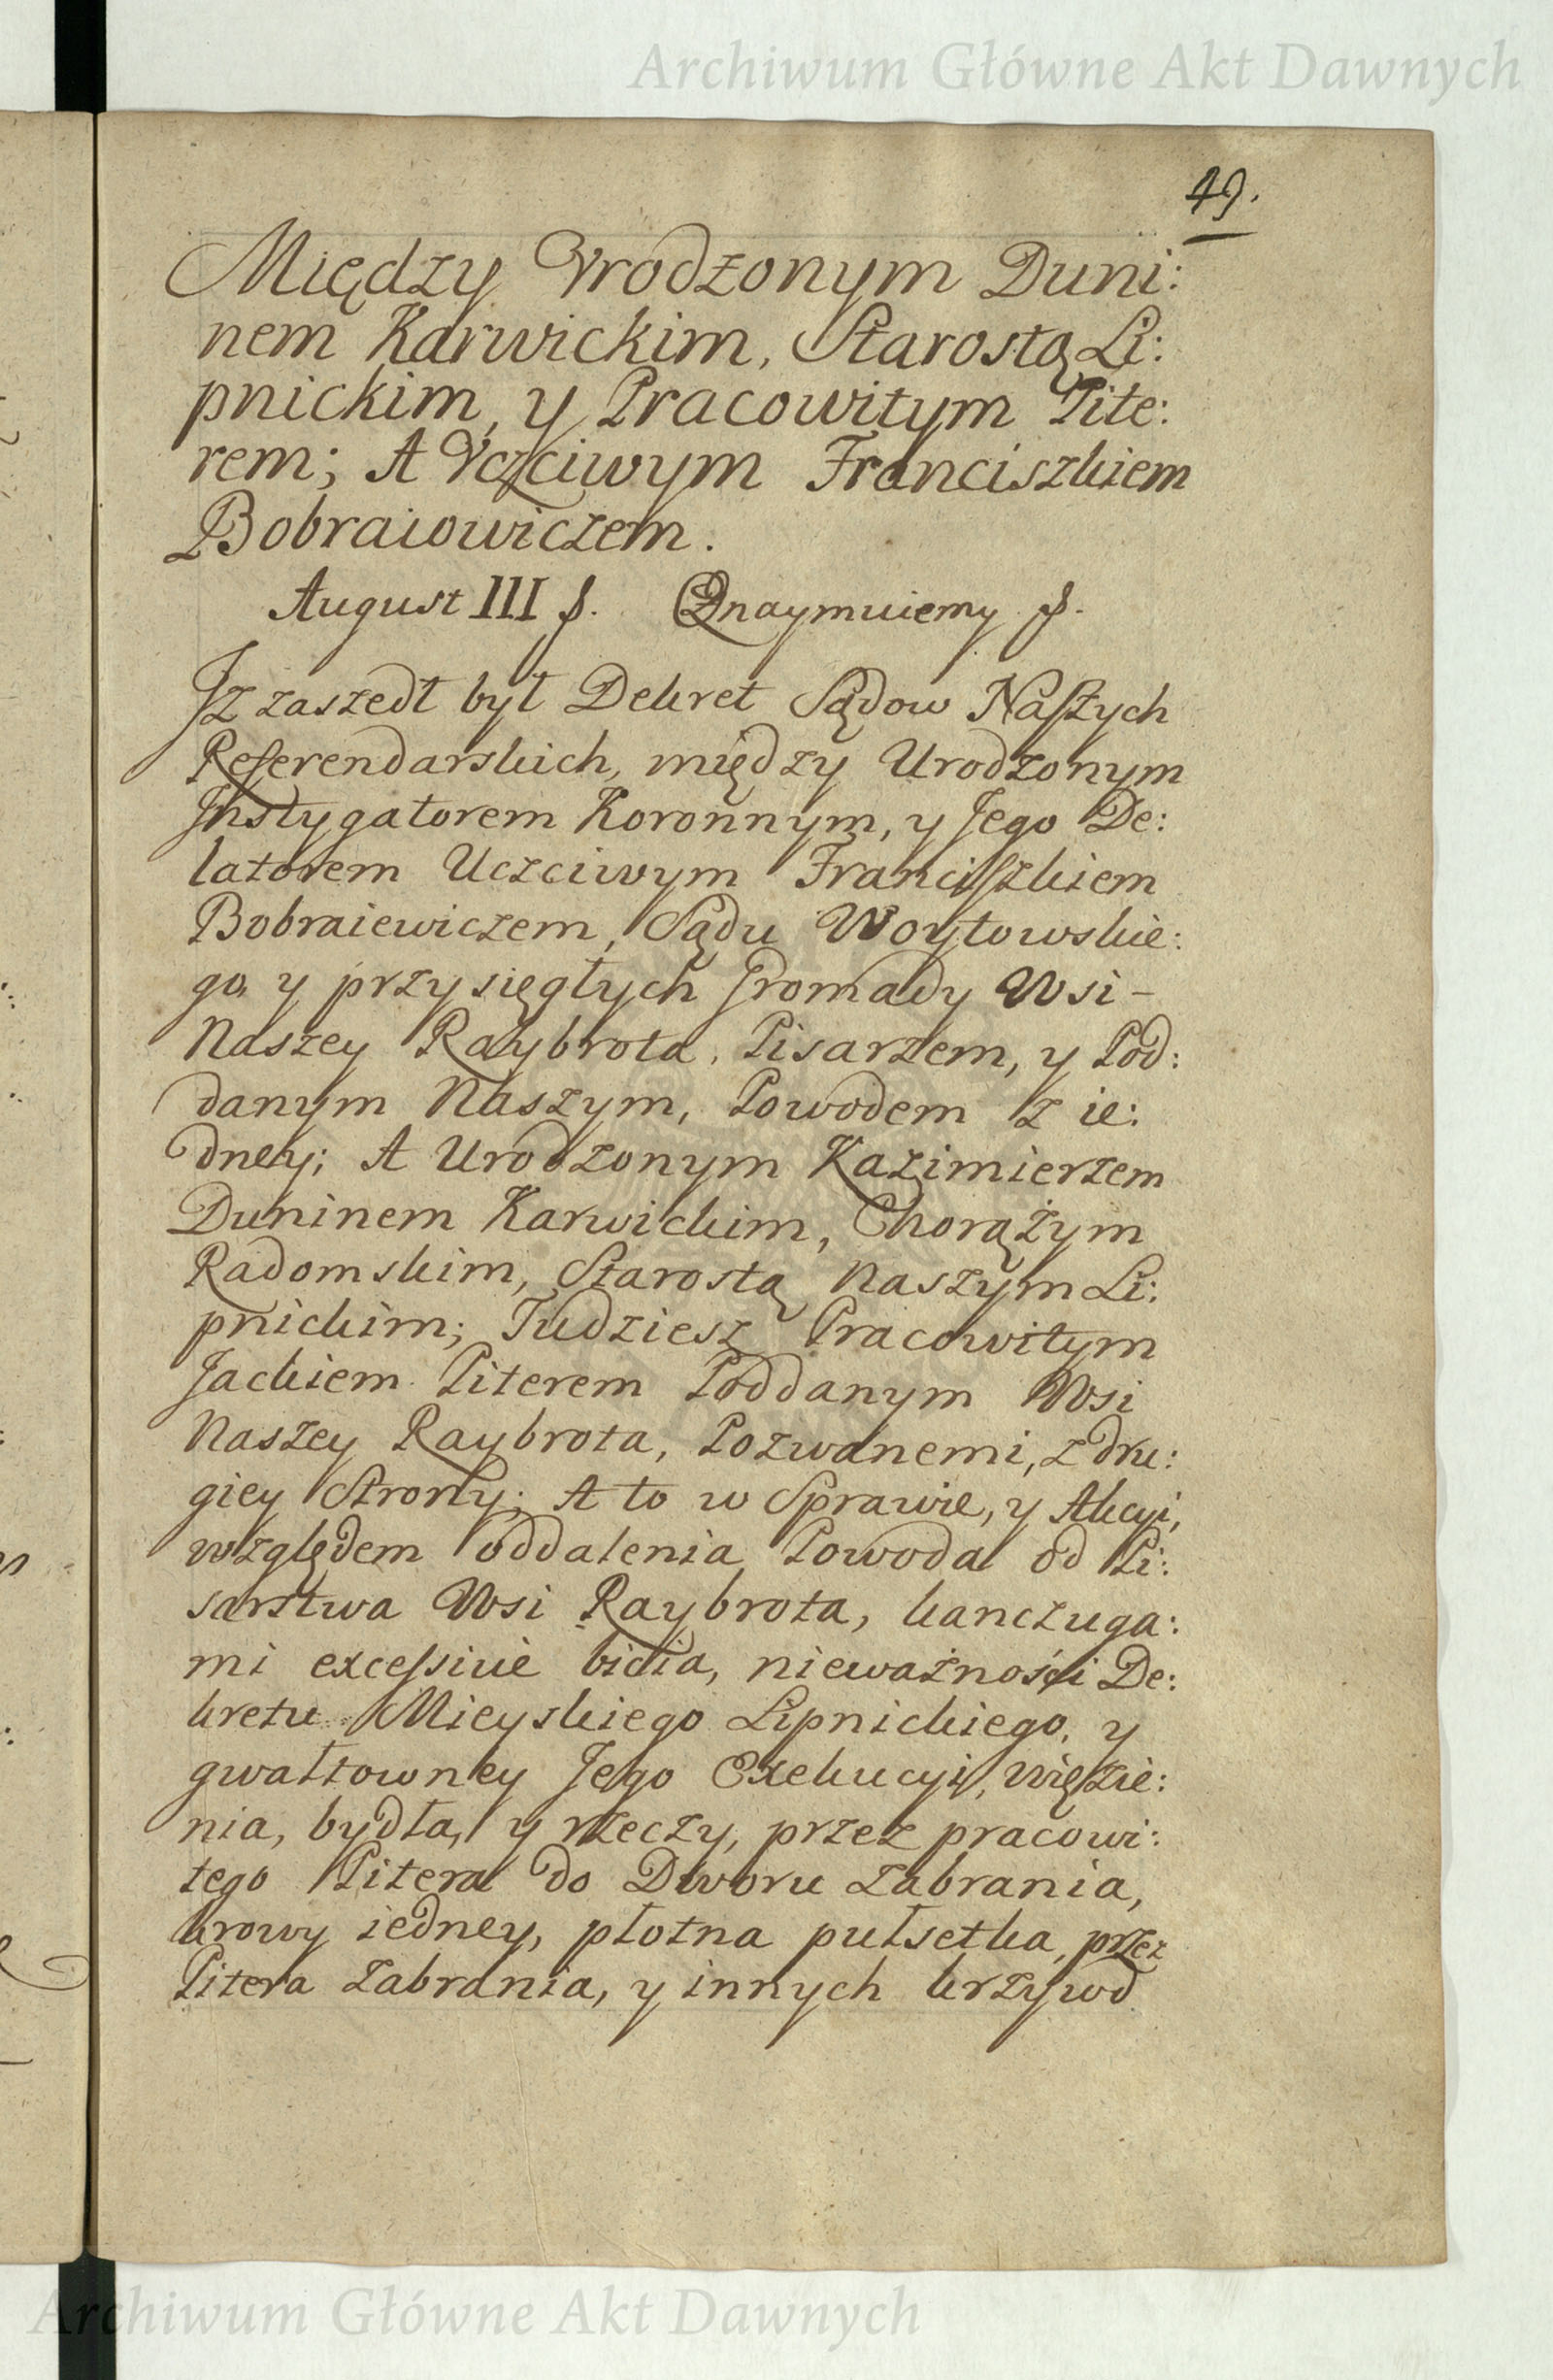 Archiwum Główne Akt Dawnych
49.
Między Vrodzonym Duni:
nem Karwickim, Starostą Li:
pnickim, y Pracowitym Pite:
rem; A Vczciwym Franciszkiem
Bobraiowiczem.
August III f. Oznaymuiemy f.
Jz zaszedł był Dekret Sądow Naszych
Referendarskich, między Urodzonym
Jnstygatorem Koronnym, y Jego De:
latorem Uczciwym Franciszkiem
Bobraiewiczem, Sądu Woytowskie:
go, y przysięgłych Gromady Wsi-
Naszey Raybrota, Pisarzem, y Pod:
danym Naszym, Powodem z ie:
dney; A Urodzonym Kazimierzem
Duninem Karwickim, Chorążym
Radomskim, Starostą Naszym Li:
pnickim; Tudziesz Pracowitym
Jackiem Piterem Poddanym Wsi
Naszey Raybrota, Pozwanemi, z dru:
giey Strony; A to w Sprawie, y Akcyi,
względem oddalenia Powoda od Pi:
sarstwa Wsi Raybrota, kanczuga:
mi excessiue bicia, nieważności De:
kretu Mieyskiego Lipnickiego, y
gwałtowney Jego Exekucyi, więzie:
nia, bydła, y rzeczy, przez pracowi:
tego Pitera do Dworu zabrania,
krowy iedney, płotna pułsetka, przez
Pitera zabrania, y innych krzywd
Archiwum Główne Akt Dawnych